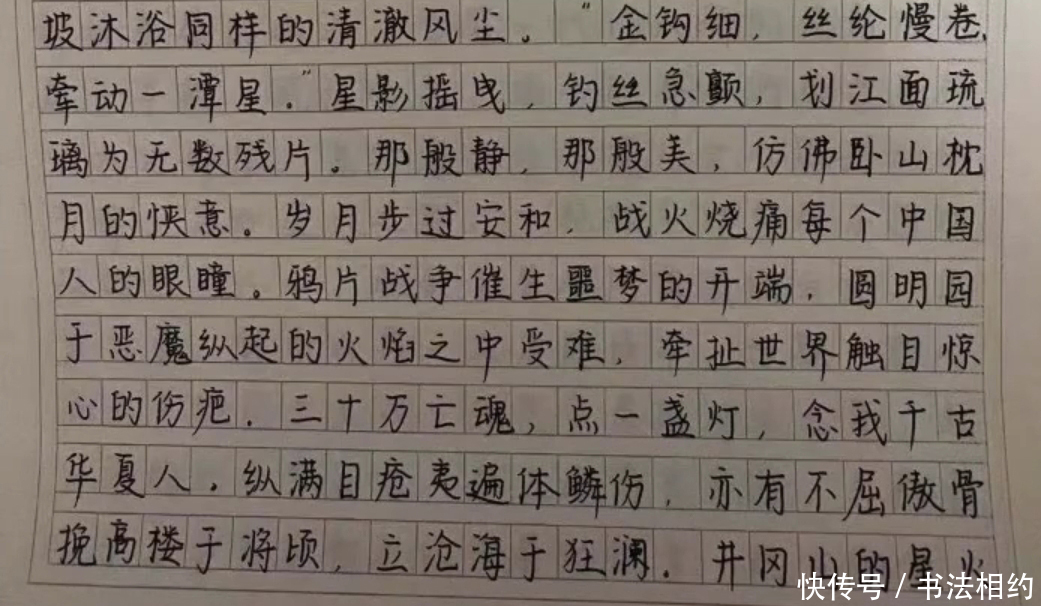 坡沐浴同样的清澈风尘。“金钩细，丝纶慢卷，
牵动一潭星。”星影摇曳，钓丝急颤，划江面琉
璃为无数残片。那般静，那般美，仿佛卧山枕
月的惬意。岁月步过安和，战火烧痛每个中国
人的眼瞳。鸦片战争催生噩梦的开端，圆明园
于恶魔纵起的火焰之中受难，牵扯世界触目惊
心的伤疤。三十万亡魂，点一盏灯，念我千古
华夏人。纵满目疮夷遍体鳞伤，亦有不屈傲骨
挽高楼于将顷，立沧海于狂澜。井冈山的星火
快传号 / 书法相约